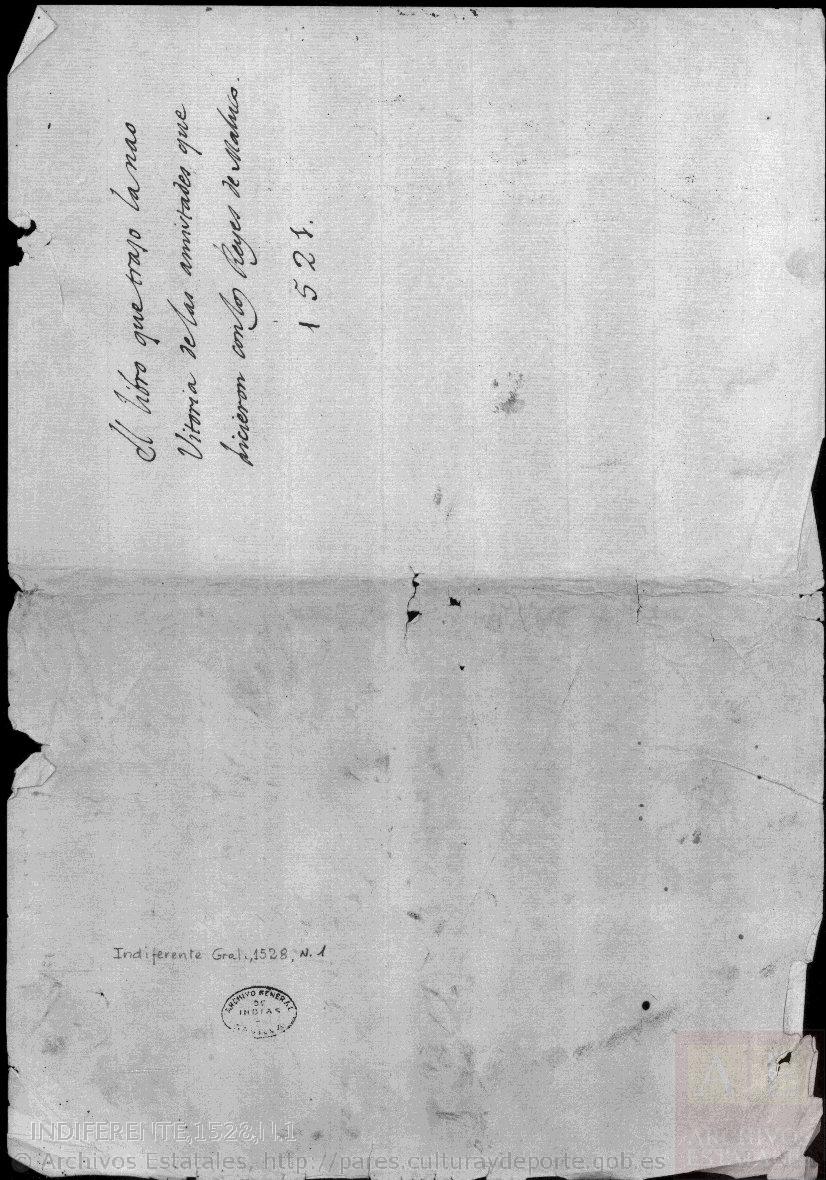 El libro que trajo la nao
Vitoria de las amistades que
hicieron con los Reyes de Maluco.
1521.
Indiferente Gral.,1528, N.1
ARCHIVO GENERAL
DE
INDIAS
SEVILLA
INDIFERENTE,1528,N.1
© Archivos Estatales, http://pares.culturaydeporte.gob.es
ARCHIVOS
ESTATALES